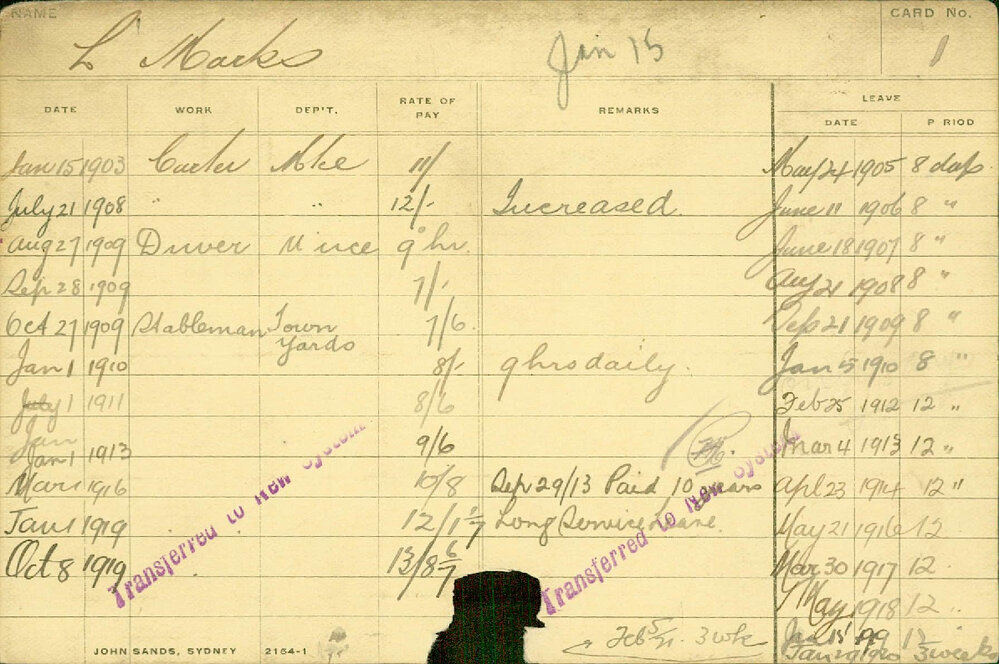 NAME CARD No.
L Marks Jan 15 1
DATE WORK DEP'T. RATE OF PAY REMARKS LEAVE
DATE P RIOD
Jan 15 1903 Carter 11/ May 24 1905 8 days
July 21 1908 " " 12/- Increased. June 11 1906 8 "
Aug 27 1909 Driver 9 hr. June 18 1907 8 "
Sep 28 1909 7/- Aug 21 1908 8 "
Oct 27 1909 Stableman Town Yards 7/6 Sep 21 1909 8 "
Jan 1 1910 8/- 9 hrs daily. Jan 5 1910 8 "
July 1 1911 8/6 Feb 25 1912 12 "
Jan
Jan 1 1913 9/6 Mar 4 1913 12 "
Mar 1 1916 10/8 Sep 29/13 Paid 10 years Apl 23 1914 12 "
Jan 1 1919 12/1 1/7 Long Service Leave. May 21 1916 12
Oct 8 1919 13/8 6/7 Mar 30 1917 12
May 1918 12 "
Transferred to New System
Transferred to New System
Feb 5/21. 3 wk Jan 15 12
Jan 29 1920 3 weeks
JOHN SANDS, SYDNEY 2164-1